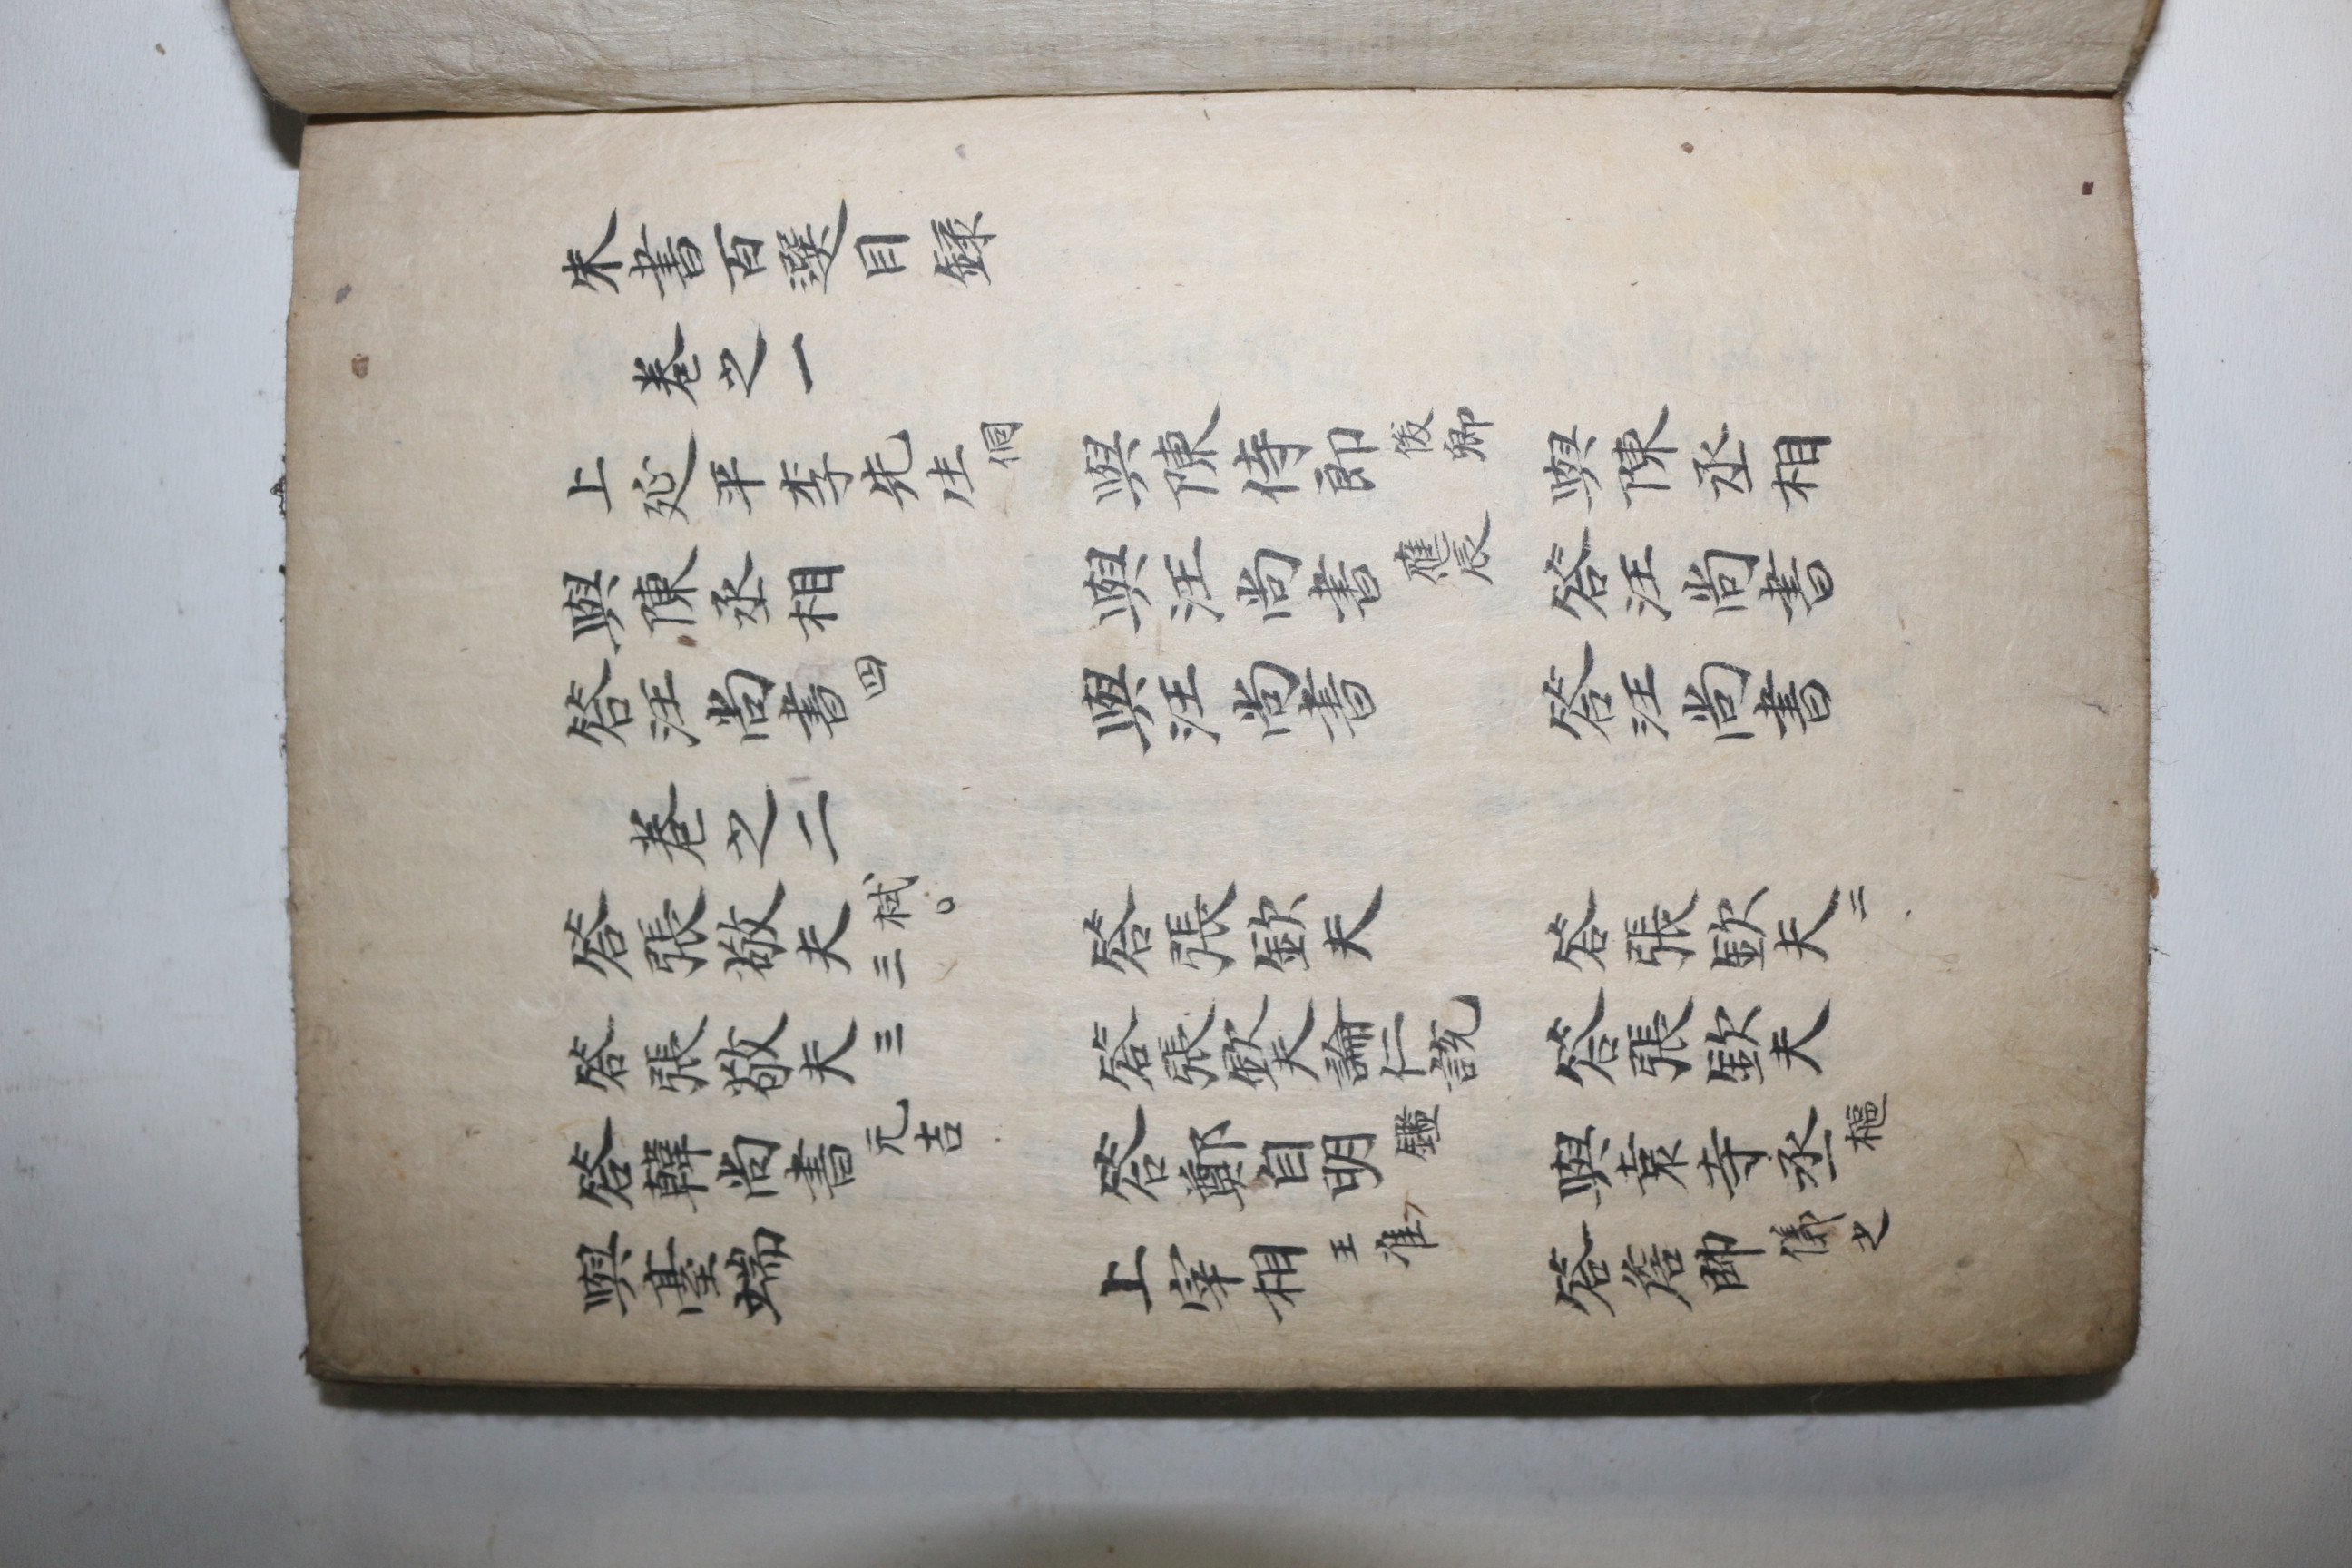 朱書百選目録
卷之一
上延平李先生侗 與陳侍郎俊卿 與陳丞相
與陳丞相 與汪尚書應辰 答汪尚書
答汪尚書四 與汪尚書 答汪尚書
卷之二
答張敬夫栻○三 答張欽夫 答張欽夫二
答張敬夫三 答張欽夫論仁説 答張欽夫
答韓尚書元吉 答鄭自明鑑 與袁寺丞樞
與臺端 上宰相王准 答詹帥儀之